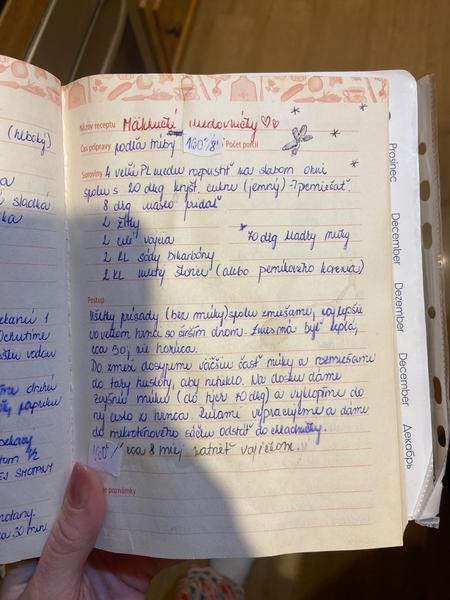 (hebocký)
sladká
1
Ochutíme
vodou
papriku
1/2
30 min.
Názov receptu Mäkkučké medovníčky
Čas prípravy podľa múky 160°/8' Počet porcií
Suroviny 4 veľké PL medu rozpustiť na slabom ohni
spolu s 20 dkg kryšt. cukru (jemný) → premiešať.
8 dkg maslo pridať
2 žĺtky
2 celé vajcia
* 70 dkg hladkej múky
2 KL sódy bikarbóny
2 KL mletej škorice (alebo perníkového korenia)
Postup
Všetky prísady (bez múky) spolu zmiešame, najlepšie
vo veľkom hrnci so širším dnom. Zmes má byť teplá,
cca 50°, nie horúca.
Do zmesi dosypeme väčšiu časť múky a rozmiešame
do takej hustoty, aby netieklo. Na dosku dáme
zvyšnú múku (do tých 70 dkg) a vyklopíme do
nej cesto z hrnca. Rukami vypracujeme a dáme
do mikroténového sáčku odstáť do chladničky.
160°/ cca 8 min, natrieť vajíčkom.
poznámky
Prosinec
December
Dezember
December
Декабрь